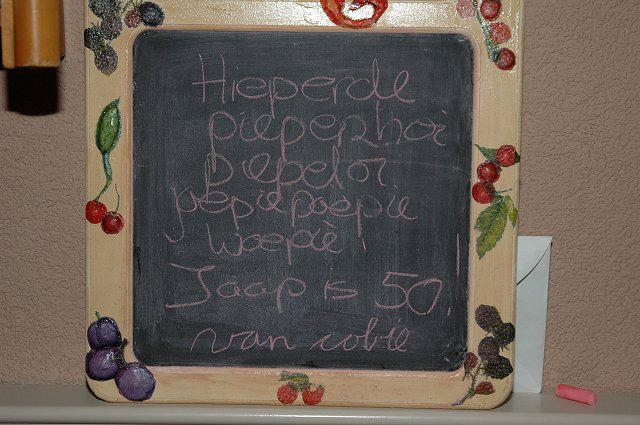 Hieperde
piepephoi
piepeloi
joepiepoepie
woepie!
Jaap is 50!
van cobie